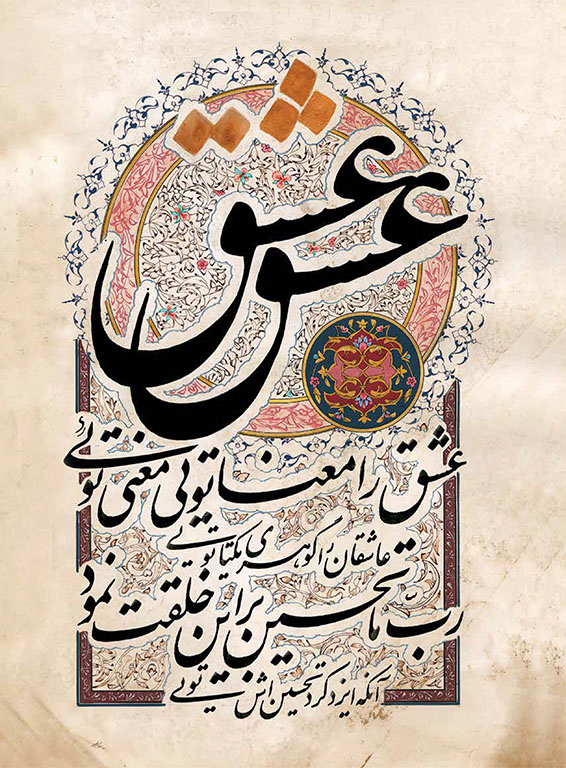 عشق عشق
عشق را معنا تویی معنی تویی
عاشقان را گوهری یکتا تویی
رب ما تحسین بر این خلقت نمود
آنکه ایزد کرد تحسین اش تویی